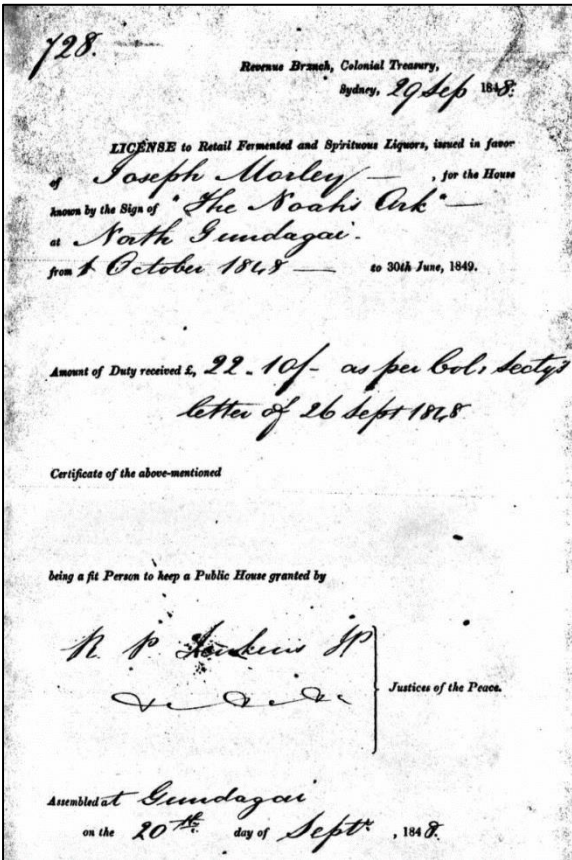 728.
Revenue Branch, Colonial Treasury,
Sydney, 29 Sep 1848.
LICENSE to Retail Fermented and Spirituous Liquors, issued in favor
of Joseph Morley — , for the House
known by the Sign of "The Noahs Ark" —
at North Gundagai.
from 1 October 1848 — to 30th June, 1849.
Amount of Duty received £, 22 - 10/- as per Col. Secty's
letter of 26 Sept 1848
Certificate of the above-mentioned
being a fit Person to keep a Public House granted by
R. P. Jenkins JP
Justices of the Peace.
Assembled at Gundagai
on the 20th. day of Septr. , 1848.